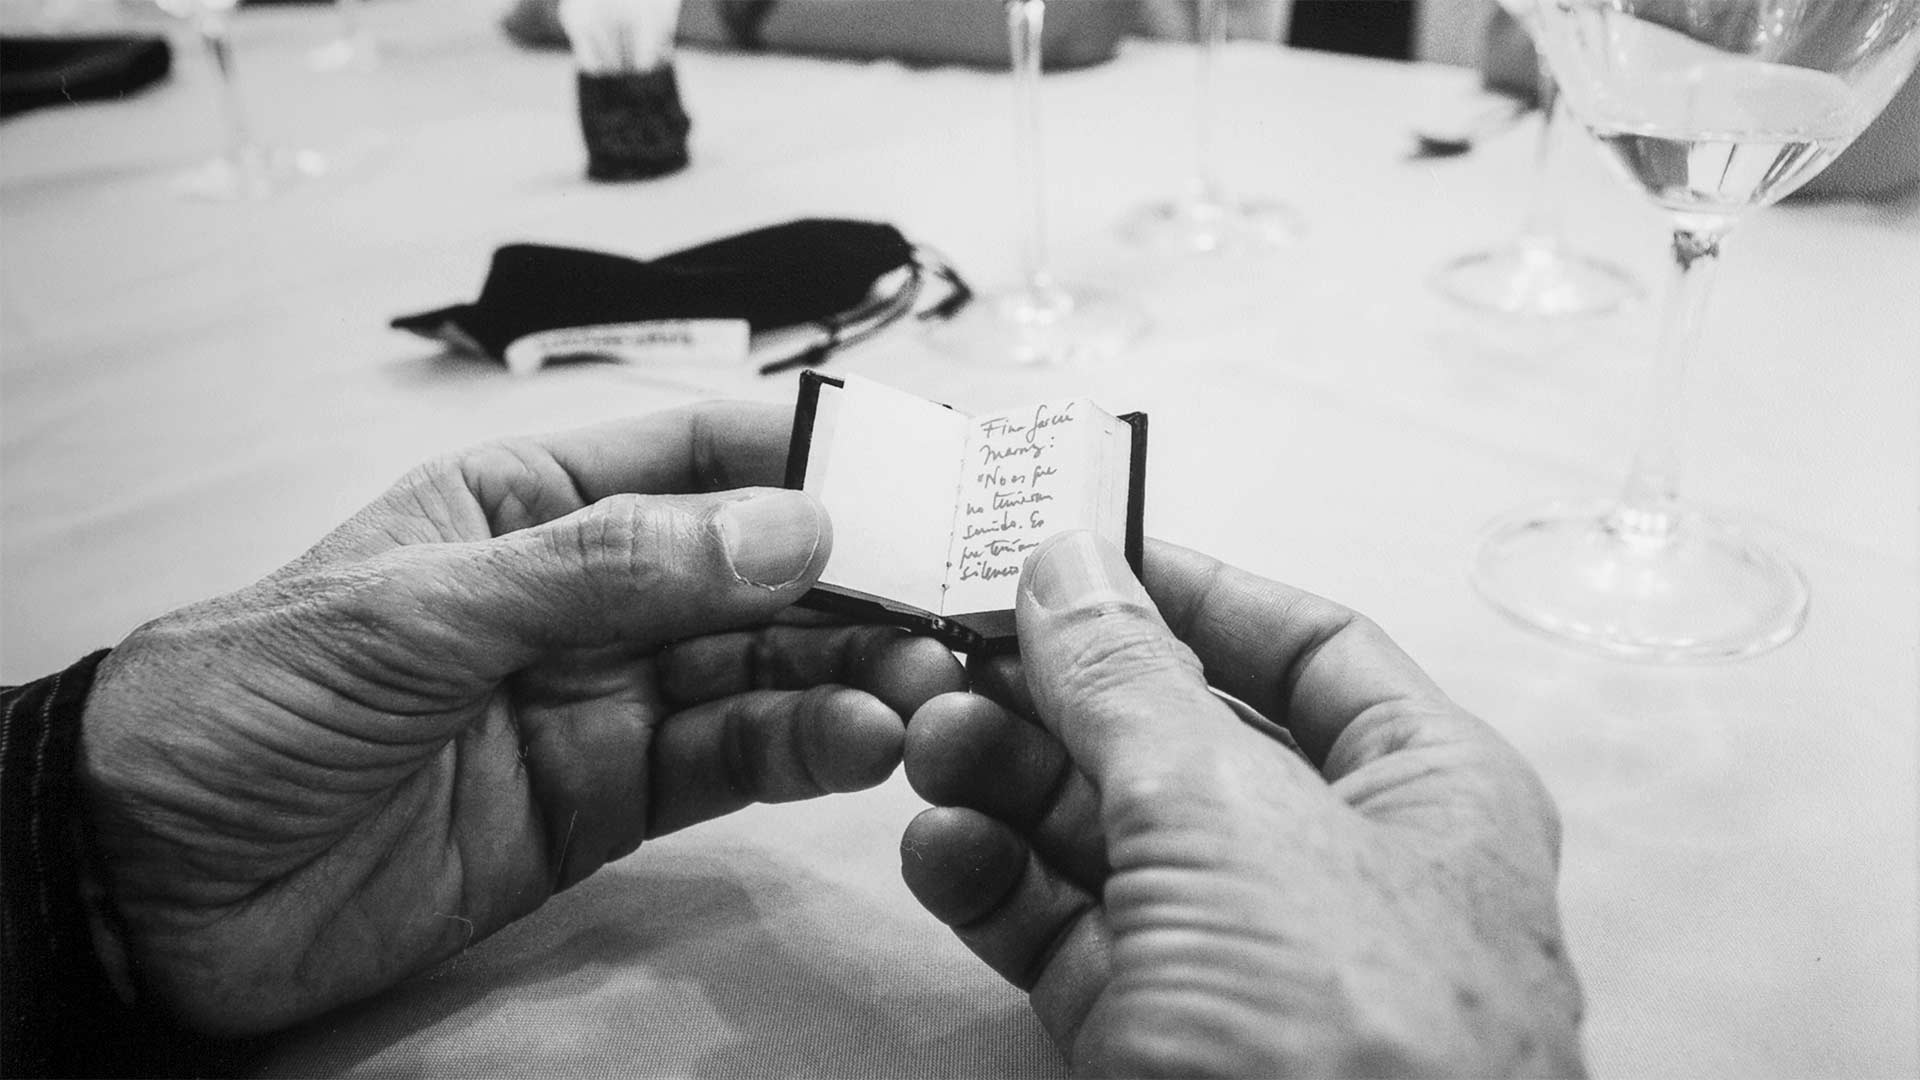 Fina García
Marruz:
"No es que
no tuvieran
sonido. Es
que tenían
silencio